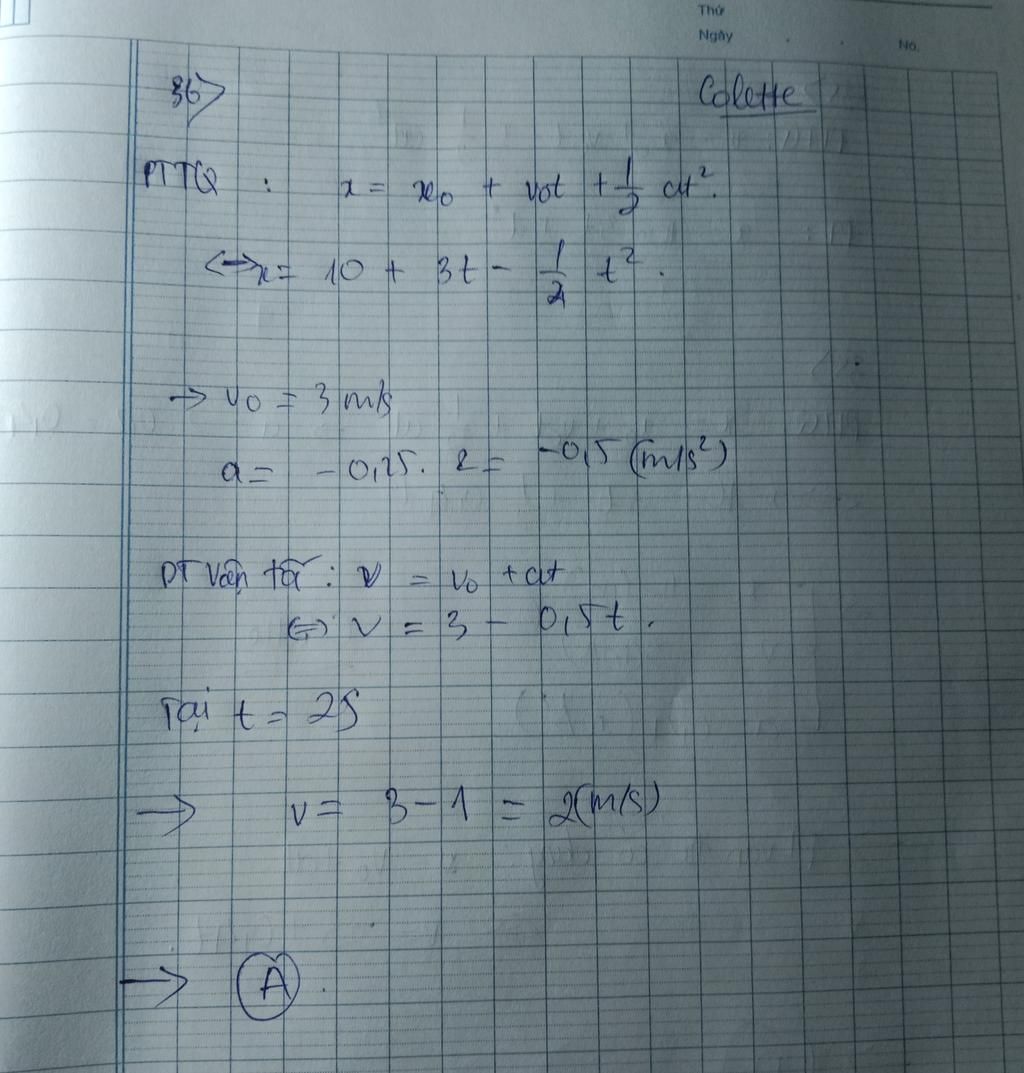 Thứ
Ngày . . No.
36> Colette
PTTQ : x = x₀ + v₀t + 1/2 at².
<-> x = 10 + 3t - 1/2 t².
-> v₀ = 3 m/s
a = -0,25. 2 = -0,5 (m/s²)
PT Vận tốc : v = v₀ + at
<=> v = 3 - 0,5t.
Tại t = 2s
-> v = 3 - 1 = 2 (m/s)
-> A.